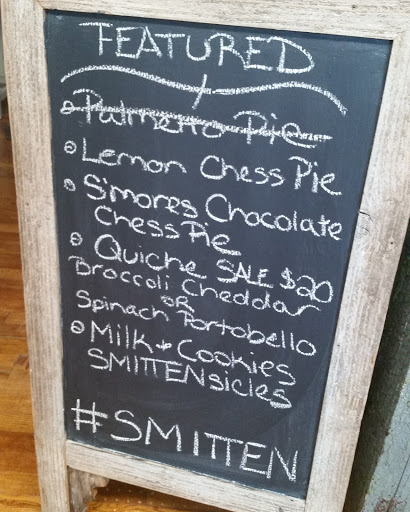 FEATURED
Palmetto Pie
Lemon Chess Pie
S'mores Chocolate
Chess Pie
Quiche SALE $20
Broccoli Cheddar
OR
Spinach Portobello
Milk + Cookies
SMITTENsicles
#SMITTEN